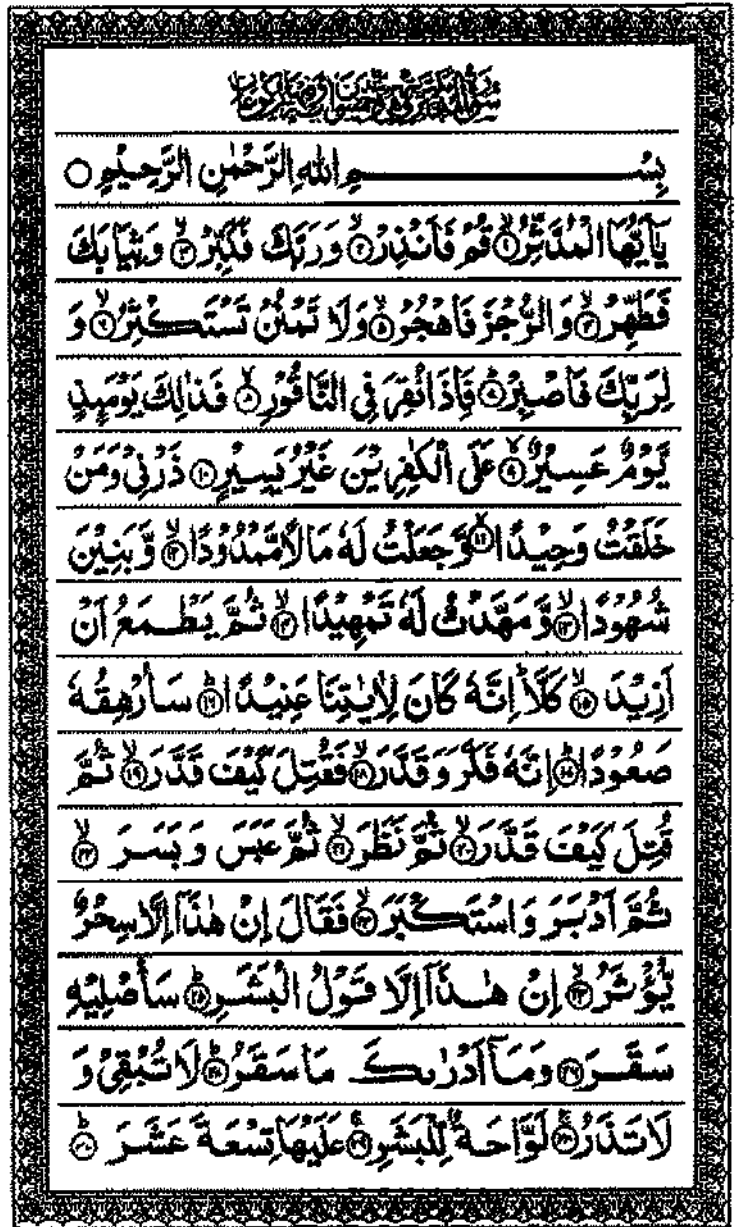 بِسْمِ اللهِ الرَّحْمٰنِ الرَّحِيْمِ ○
يٰٓاَيُّهَا الْمُدَّثِّرُ ۙ﴿١﴾ قُمْ فَاَنْذِرْ ۙ﴿٢﴾ وَرَبَّكَ فَكَبِّرْ ۙ﴿٣﴾ وَثِيَابَكَ
فَطَهِّرْ ۙ﴿٤﴾ وَالرُّجْزَ فَاهْجُرْ ۙ﴿٥﴾ وَلَا تَمْنُنْ تَسْتَكْثِرُ ۙ﴿٦﴾ وَ
لِرَبِّكَ فَاصْبِرْ ؕ﴿٧﴾ فَاِذَا نُقِرَ فِي النَّاقُوْرِ ۙ﴿٨﴾ فَذٰلِكَ يَوْمَئِذٍ
يَّوْمٌ عَسِيْرٌ ۙ﴿٩﴾ عَلَى الْكٰفِرِيْنَ غَيْرُ يَسِيْرٍ ﴿١٠﴾ ذَرْنِيْ وَمَنْ
خَلَقْتُ وَحِيْدًا ۙ﴿١١﴾ وَّجَعَلْتُ لَهٗ مَالًا مَّمْدُوْدًا ۙ﴿١٢﴾ وَّبَنِيْنَ
شُهُوْدًا ۙ﴿١٣﴾ وَّمَهَّدْتُّ لَهٗ تَمْهِيْدًا ۙ﴿١٤﴾ ثُمَّ يَطْمَعُ اَنْ
اَزِيْدَ ۙ﴿١٥﴾ كَلَّا ؕ اِنَّهٗ كَانَ لِاٰيٰتِنَا عَنِيْدًا ؕ﴿١٦﴾ سَاُرْهِقُهٗ
صَعُوْدًا ؕ﴿١٧﴾ اِنَّهٗ فَكَّرَ وَقَدَّرَ ۙ﴿١٨﴾ فَقُتِلَ كَيْفَ قَدَّرَ ۙ﴿١٩﴾ ثُمَّ
قُتِلَ كَيْفَ قَدَّرَ ۙ﴿٢٠﴾ ثُمَّ نَظَرَ ۙ﴿٢١﴾ ثُمَّ عَبَسَ وَبَسَرَ ۙ﴿٢٢﴾
ثُمَّ اَدْبَرَ وَاسْتَكْبَرَ ۙ﴿٢٣﴾ فَقَالَ اِنْ هٰذَآ اِلَّا سِحْرٌ
يُّؤْثَرُ ۙ﴿٢٤﴾ اِنْ هٰذَآ اِلَّا قَوْلُ الْبَشَرِ ؕ﴿٢٥﴾ سَاُصْلِيْهِ
سَقَرَ ﴿٢٦﴾ وَمَآ اَدْرٰىكَ مَا سَقَرُ ؕ﴿٢٧﴾ لَا تُبْقِيْ وَ
لَا تَذَرُ ۚ﴿٢٨﴾ لَوَّاحَةٌ لِّلْبَشَرِ ۚ﴿٢٩﴾ عَلَيْهَا تِسْعَةَ عَشَرَ ؕ﴿٣٠﴾